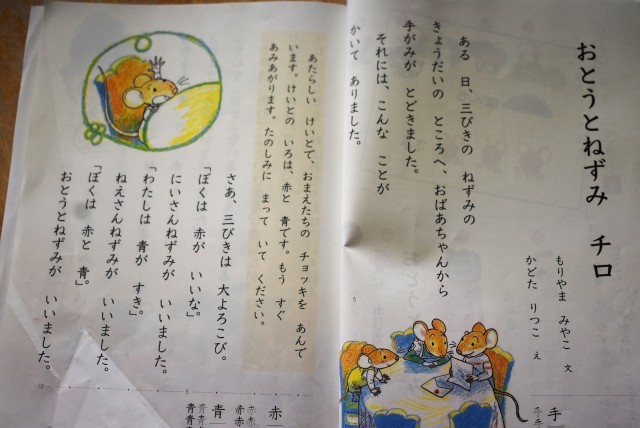 おとうとねずみ チロ
もりやま みやこ 文
かどた りつこ え
ある 日、三びきの ねずみの
きょうだいの ところへ、おばあちゃんから
手がみが とどきました。
それには、こんな ことが
かいて ありました。
手
5
あたらしい けいとで、おまえたちの チョッキを あんで
います。けいとの いろは、赤と 青です。もう すぐ
あみあがります。たのしみに まって いて ください。
さあ、三びきは 大よろこび。
「ぼくは 赤が いいな。」
にいさんねずみが いいました。
「わたしは 青が すき。」
ねえさんねずみが いいました。
「ぼくは 赤と 青。」
おとうとねずみが いいました。
5
10
赤
青